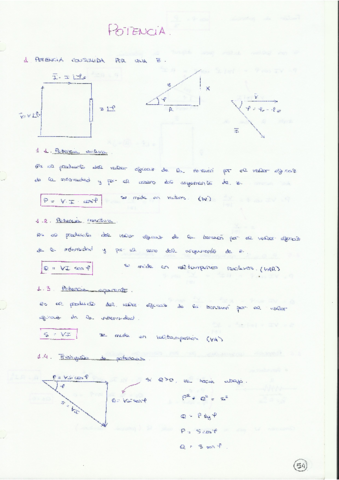 POTENCIA.
1. POTENCIA CONSUMIDA POR UNA Z.
Z
X
R
φ
I
1.1. Potencia activa
Es el producto del valor eficaz de la tensión por el valor eficaz
de la intensidad y por el coseno del argumento de
P = V·I cosφ se mide en vatios (W)
1.2. Potencia reactiva
Es el producto del valor eficaz de la tensión por el valor eficaz
de la intensidad y por el seno del argumento de
Q = VI senφ se mide en voltamperios reactivos (VAR)
1.3 Potencia aparente
Es el producto del valor eficaz de la tensión por el valor
eficaz de la intensidad
S = VI se mide en voltamperios (VA)
1.4. Triángulo de potencias
P = VI cosφ
φ
Q = VI senφ
S = VI
Si Q>0, se hace abajo.
P² + Q² = S²
Q = P tgφ
P = S cosφ
Q = S senφ